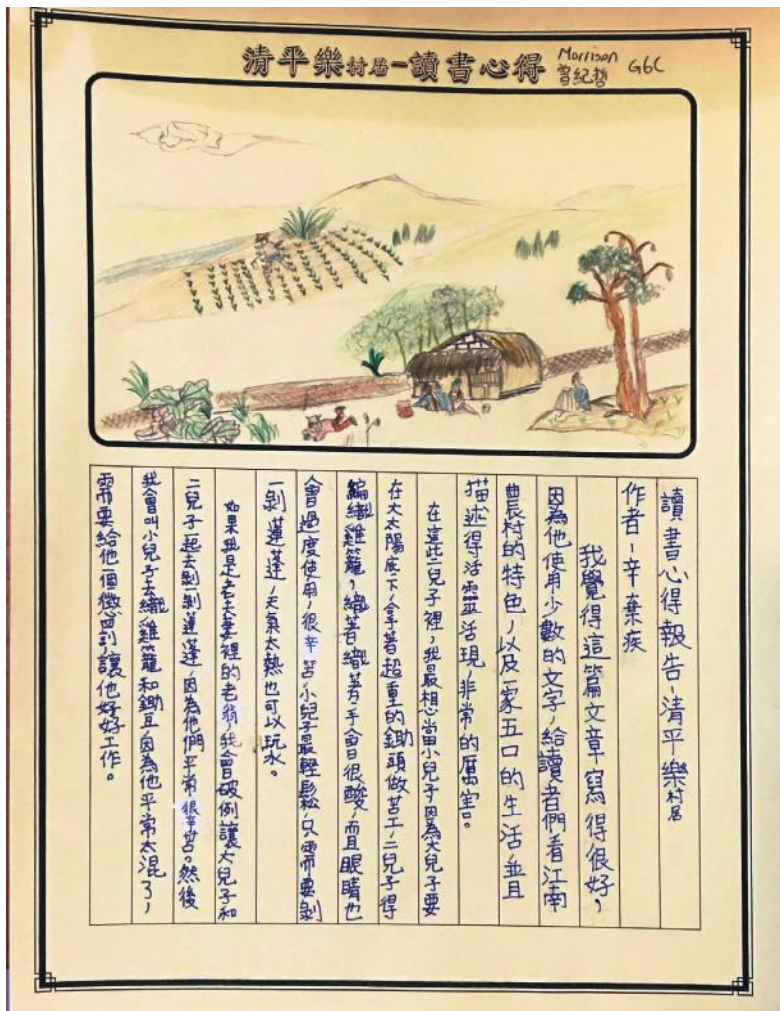 清平樂村居-讀書心得
Morrison
曾紀哲
G6C
讀書心得報告,清平樂村居
作者,辛棄疾
我覺得這篇文章寫得很好,
因為他使用少數的文字,給讀者們看江南
農村的特色,以及一家五口的生活,並且
描述得活靈活現,非常的厲害。
在這些兒子裡,我最想當小兒子因為大兒子要
在大太陽底下,拿著超重的鋤頭做苦工,二兒子得
編織雞籠,織著織著,手會很酸,而且眼睛也
會過度使用,很辛苦,小兒子最輕鬆,只需要剝
一剝蓮蓬,天氣太熱也可以玩水。
如果我是老夫妻裡的老翁,我會破例讓大兒子和
二兒子一起去剝一剝蓮蓬,因為他們平常很辛苦。然後
我會叫小兒子去織雞籠和鋤豆,因為他平常太混了,
需要給他個懲罰,讓他好好工作。